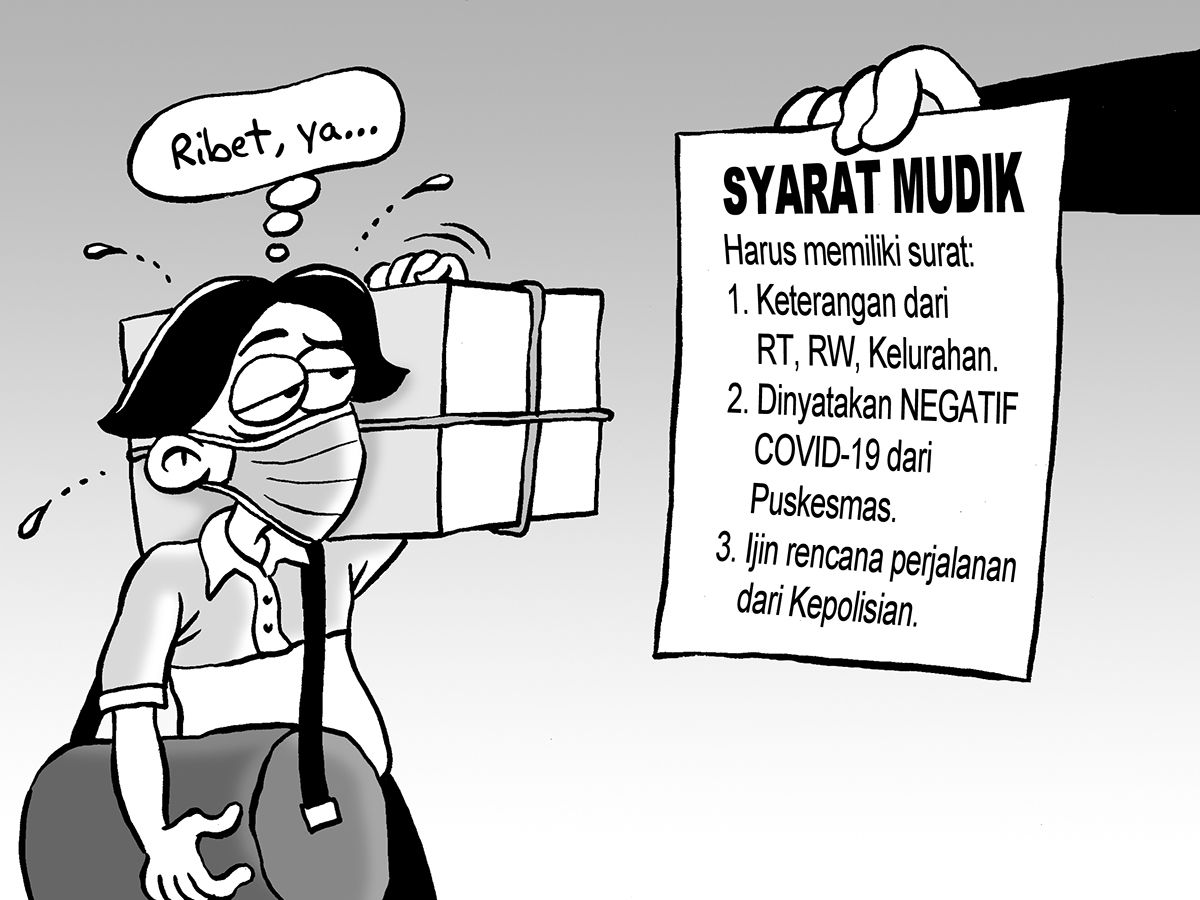 Ribet, ya...
SYARAT MUDIK
Harus memiliki surat:
1. Keterangan dari
RT, RW, Kelurahan.
2. Dinyatakan NEGATIF
COVID-19 dari
Puskesmas.
3. Ijin rencana perjalanan
dari Kepolisian.